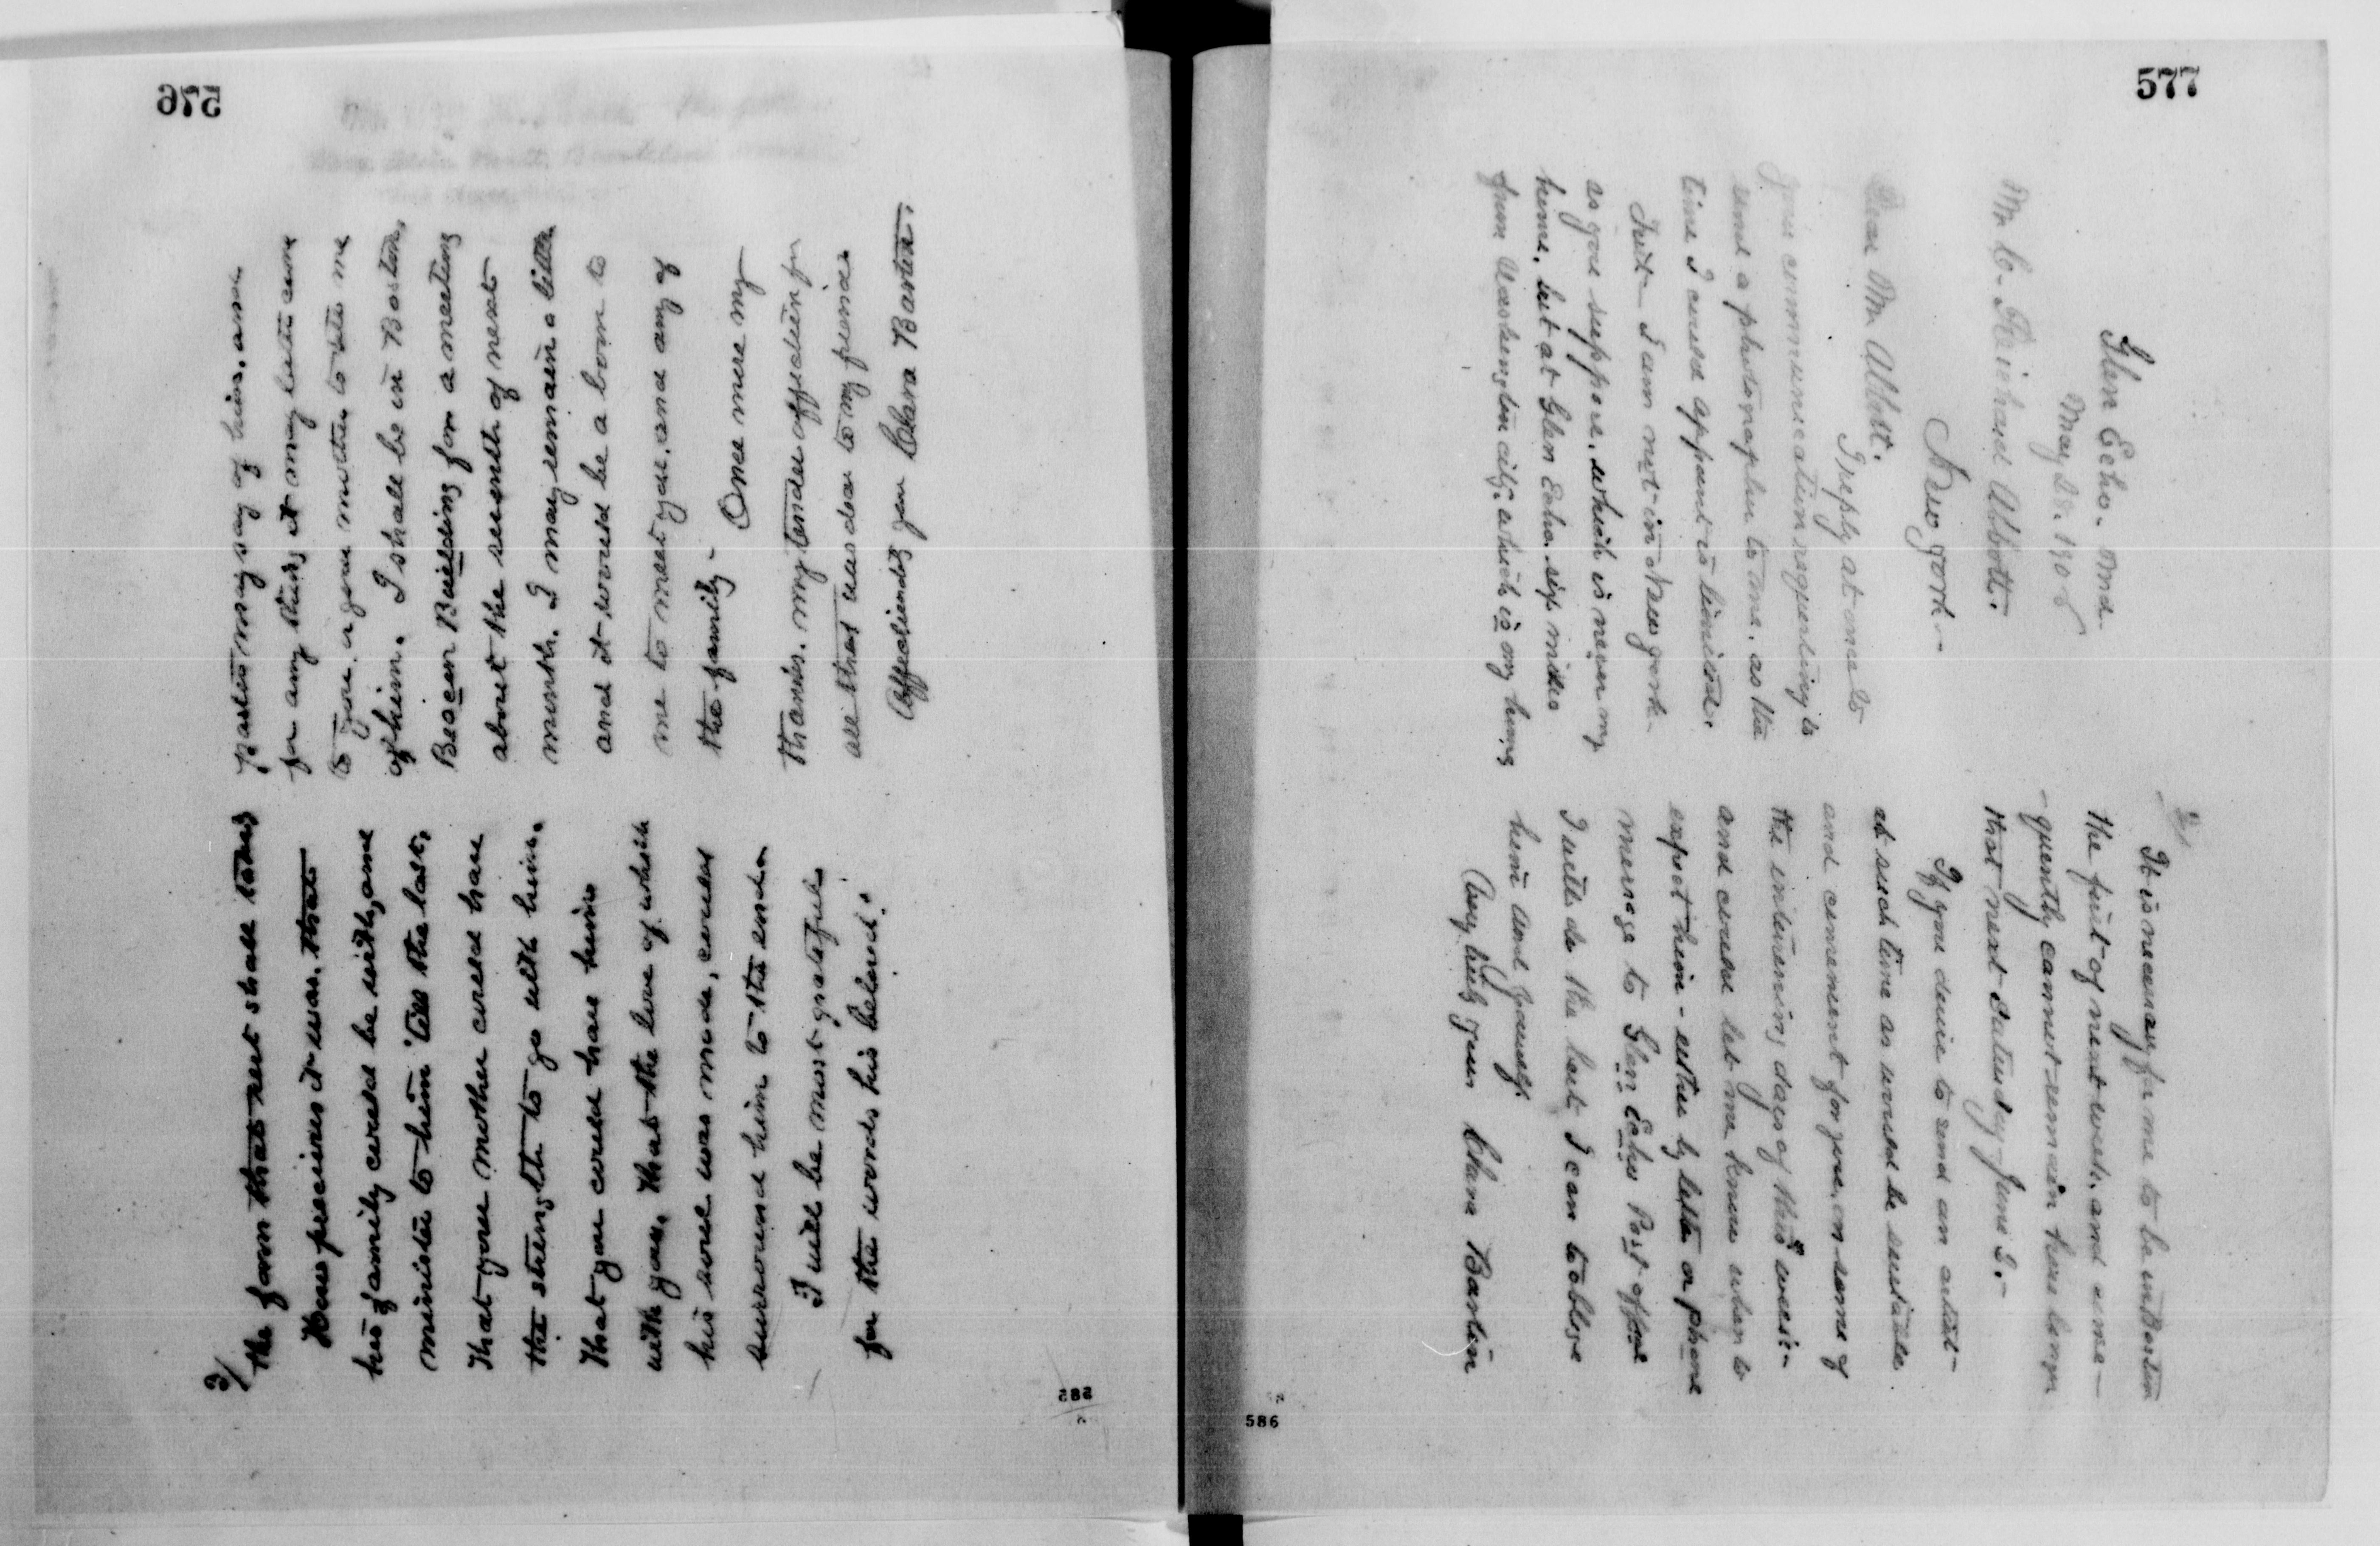 576
3/
the form that rest shall take
How precious it was, that
his family could be with, and
minister to him 'till the last,
that your mother could have
the strength to go with him.
that you could have him
with you, that the love of which
his soul was made, could
surround him to the end.
I will be most grateful
for the words his beloved
pastor may say of him, and
for any thing it may
to you, or your mother, to
of him. I shall be in Boston,
Beacon Building for a meeting
about the seventh of next
month. I may remain a little
and it would be a boon to
me to meet you, and any of
the family-
Once more my
thanks. my tender affection for
all that was dear to my friend
Affectionately your Clara Barton.
585
577
Glen Echo. Md.
May 28. 1905
Mr C. Reichard Abbott.
New York-
Dear Mr Abbott.
I reply at once to
your communication requesting to
send a photographer to me, as the
time I could appoint is limited.
I am not in New York
as you suppose, which is never my
home, but at Glen Echo. six miles
from Washington city, which is my home
2/
It is necessary for me to be in Boston
the first of next week. and conse-
-quently cannot remain here longer
that next Saturday June 3.-
If you desire to send an artist-
at such time as would be suitable
and convenient for you, on some of
the intervening days of this week-
and could let me know when to
expect him - either by letter or phone
message to Glen Echo Post office
I will do the best I can to oblige
him and yourself.
Very truly yours Clara Barton
586